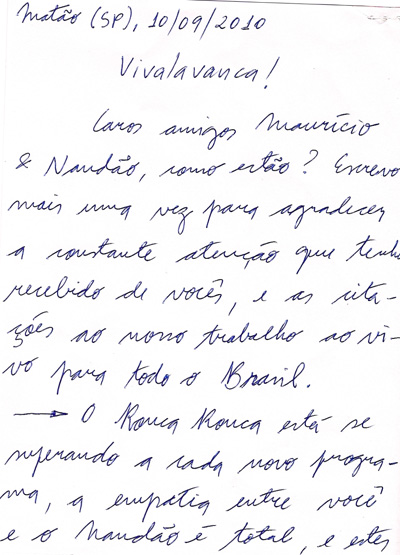 Matão (SP), 10/09/2010
Vivalavanca!
Caros amigos Maurício
& Nandão, como estão? Escrevo
mais uma vez para agradecer
a constante atenção que tenho
recebido de vocês, e as cita-
ções ao nosso trabalho ao vi-
vo para todo o Brasil.
→ O Ronca Ronca está se
superando a cada novo progra-
ma, a empatia entre você
e o Nandão é total, e estes